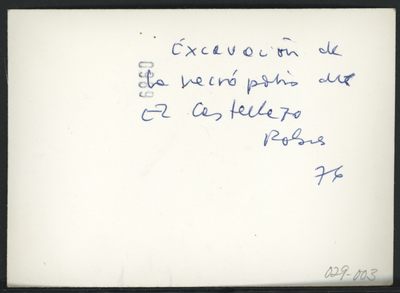 Excavación de
la necrópolis de
El Castellazo
Robres
76
029-003